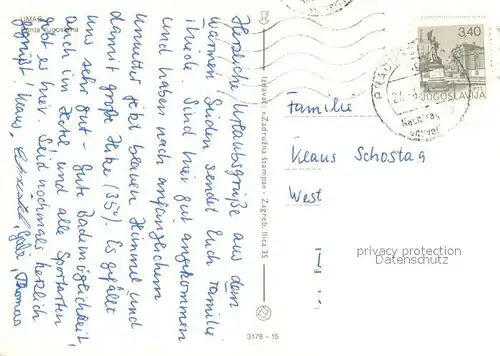 UMAG
Punta Jugoslavija
Herzliche Urlaubsgrüße aus dem
warmen Süden sendet Euch Familie
Thiede. Sind hier gut angekommen
und haben nach anfänglichem
Unwetter jetzt blauen Himmel und
damit große Hitze (35°). Es gefällt
uns sehr gut - gute Bademöglichkeit,
auch im Hotel und alle Sportarten
gibt es hier. Seid nochmals herzlich
gegrüßt Klaus, Gabi, Thomas
Izdavač: «Zadružna štampa» - Zagreb, Ilica 35
3178 - 15
3,40
JUGOSLAVIJA
Familie
Klaus Schostag
West
privacy protection
Datenschutz